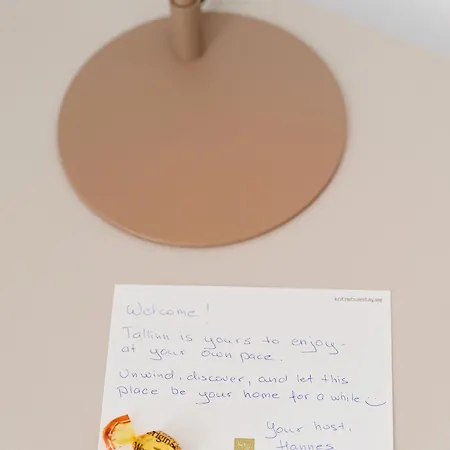 Welcome!
Tallinn is yours to enjoy -
at your own pace.
Unwind, discover, and let this
place be your home for a while
Your host,
Hannes
Original